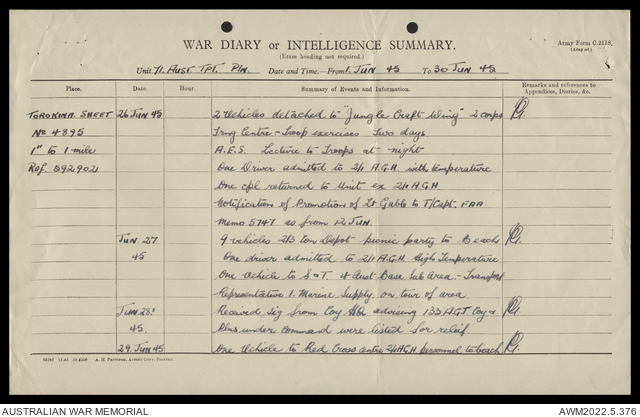 Army Form C.2118.
(Adapted.)
WAR DIARY or INTELLIGENCE SUMMARY.
(Erase heading not required.)
Unit 71. AUST. TPT. P/N. Date and Time.—From 1. JUN 45 To 30 JUN 45
Place. Date. Hour. Summary of Events and Information. Remarks and references to Appendices, Diaries, &c.
TOROKINA SHEET 26 JUN 45 2 Vehicles detached to "Jungle Craft Wing" 2 corps
No 4895 Trng Centre - Troop exercises Two days
1" to 1 mile A.E.S. Lecture to Troops at night
Ref. 592902 One Driver admitted to 2/1 A.G.H. with temperature
One cpl returned to Unit ex 2/1 A.G.H.
Notification of Promotion of Lt Gabb to T/Capt. FAA
Memo 5747 as from 12 JUN.
JUN. 27 9 vehicles 2/3 ton Depot picnic party to Beach
45 One driver admitted to 2/1 A.G.H High Temperature
One Vehicle to S & T. 4 Aust Base Sub Area - Transport
Representative 1. Marine Supply on tour of area
JUN 28. Received sig from Coy HQ advising 133 AGT Coy &
45. Plns under command were listed for relief
29. JUN 45 One Vehicle to Red Cross centre 2/1 AGH personnel to beach
A. H. PETTIFER, ACTING GOVT. PRINTER.
AUSTRALIAN WAR MEMORIAL AWM2022.5.376